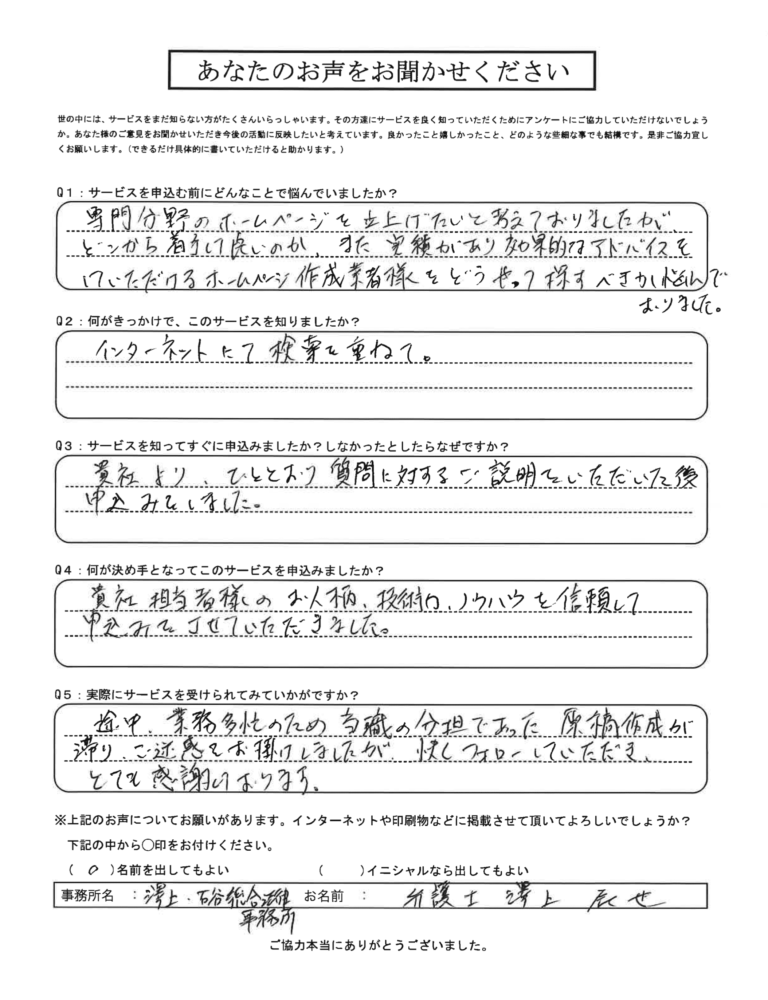 あなたのお声をお聞かせください
世の中には、サービスをまだ知らない方がたくさんいらっしゃいます。その方達にサービスを良く知っていただくためにアンケートにご協力していただけないでしょう
か。あなた様のご意見をお聞かせいただき今後の活動に反映したいと考えています。良かったこと嬉しかったこと、どのような些細な事でも結構です。是非ご協力宜し
くお願いします。（できるだけ具体的に書いていただけると助かります。）
Q1：サービスを申込む前にどんなことで悩んでいましたか？
専門分野のホームページを立上げたいと考えておりましたが、
どこから着手して良いのか、また実績があり効果的なアドバイスを
していただけるホームページ作成業者様をどうやって探すべきか悩んで
おりました。
Q2：何がきっかけで、このサービスを知りましたか？
インターネットにて検索を重ねて。
Q3：サービスを知ってすぐに申込みましたか？しなかったとしたらなぜですか？
貴社より、ひととおり質問に対するご説明をいただいた後
申込みをしました。
Q4：何が決め手となってこのサービスを申込みましたか？
貴社担当者様のお人柄、技術力、ノウハウを信頼して
申込みをさせていただきました。
Q5：実際にサービスを受けられてみていかがですか？
途中、業務多忙のため当職の分担であった原稿作成が
滞り、ご迷惑をお掛けしましたが、快くフォローしていただき、
とても感謝しております。
※上記のお声についてお願いがあります。インターネットや印刷物などに掲載させて頂いてよろしいでしょうか？
下記の中から○印をお付けください。
（ ○ ）名前を出してもよい （ ）イニシャルなら出してもよい
事務所名 ：澤上・石谷総合法律 お名前 ： 弁護士 澤上 辰也
事務所
ご協力本当にありがとうございました。